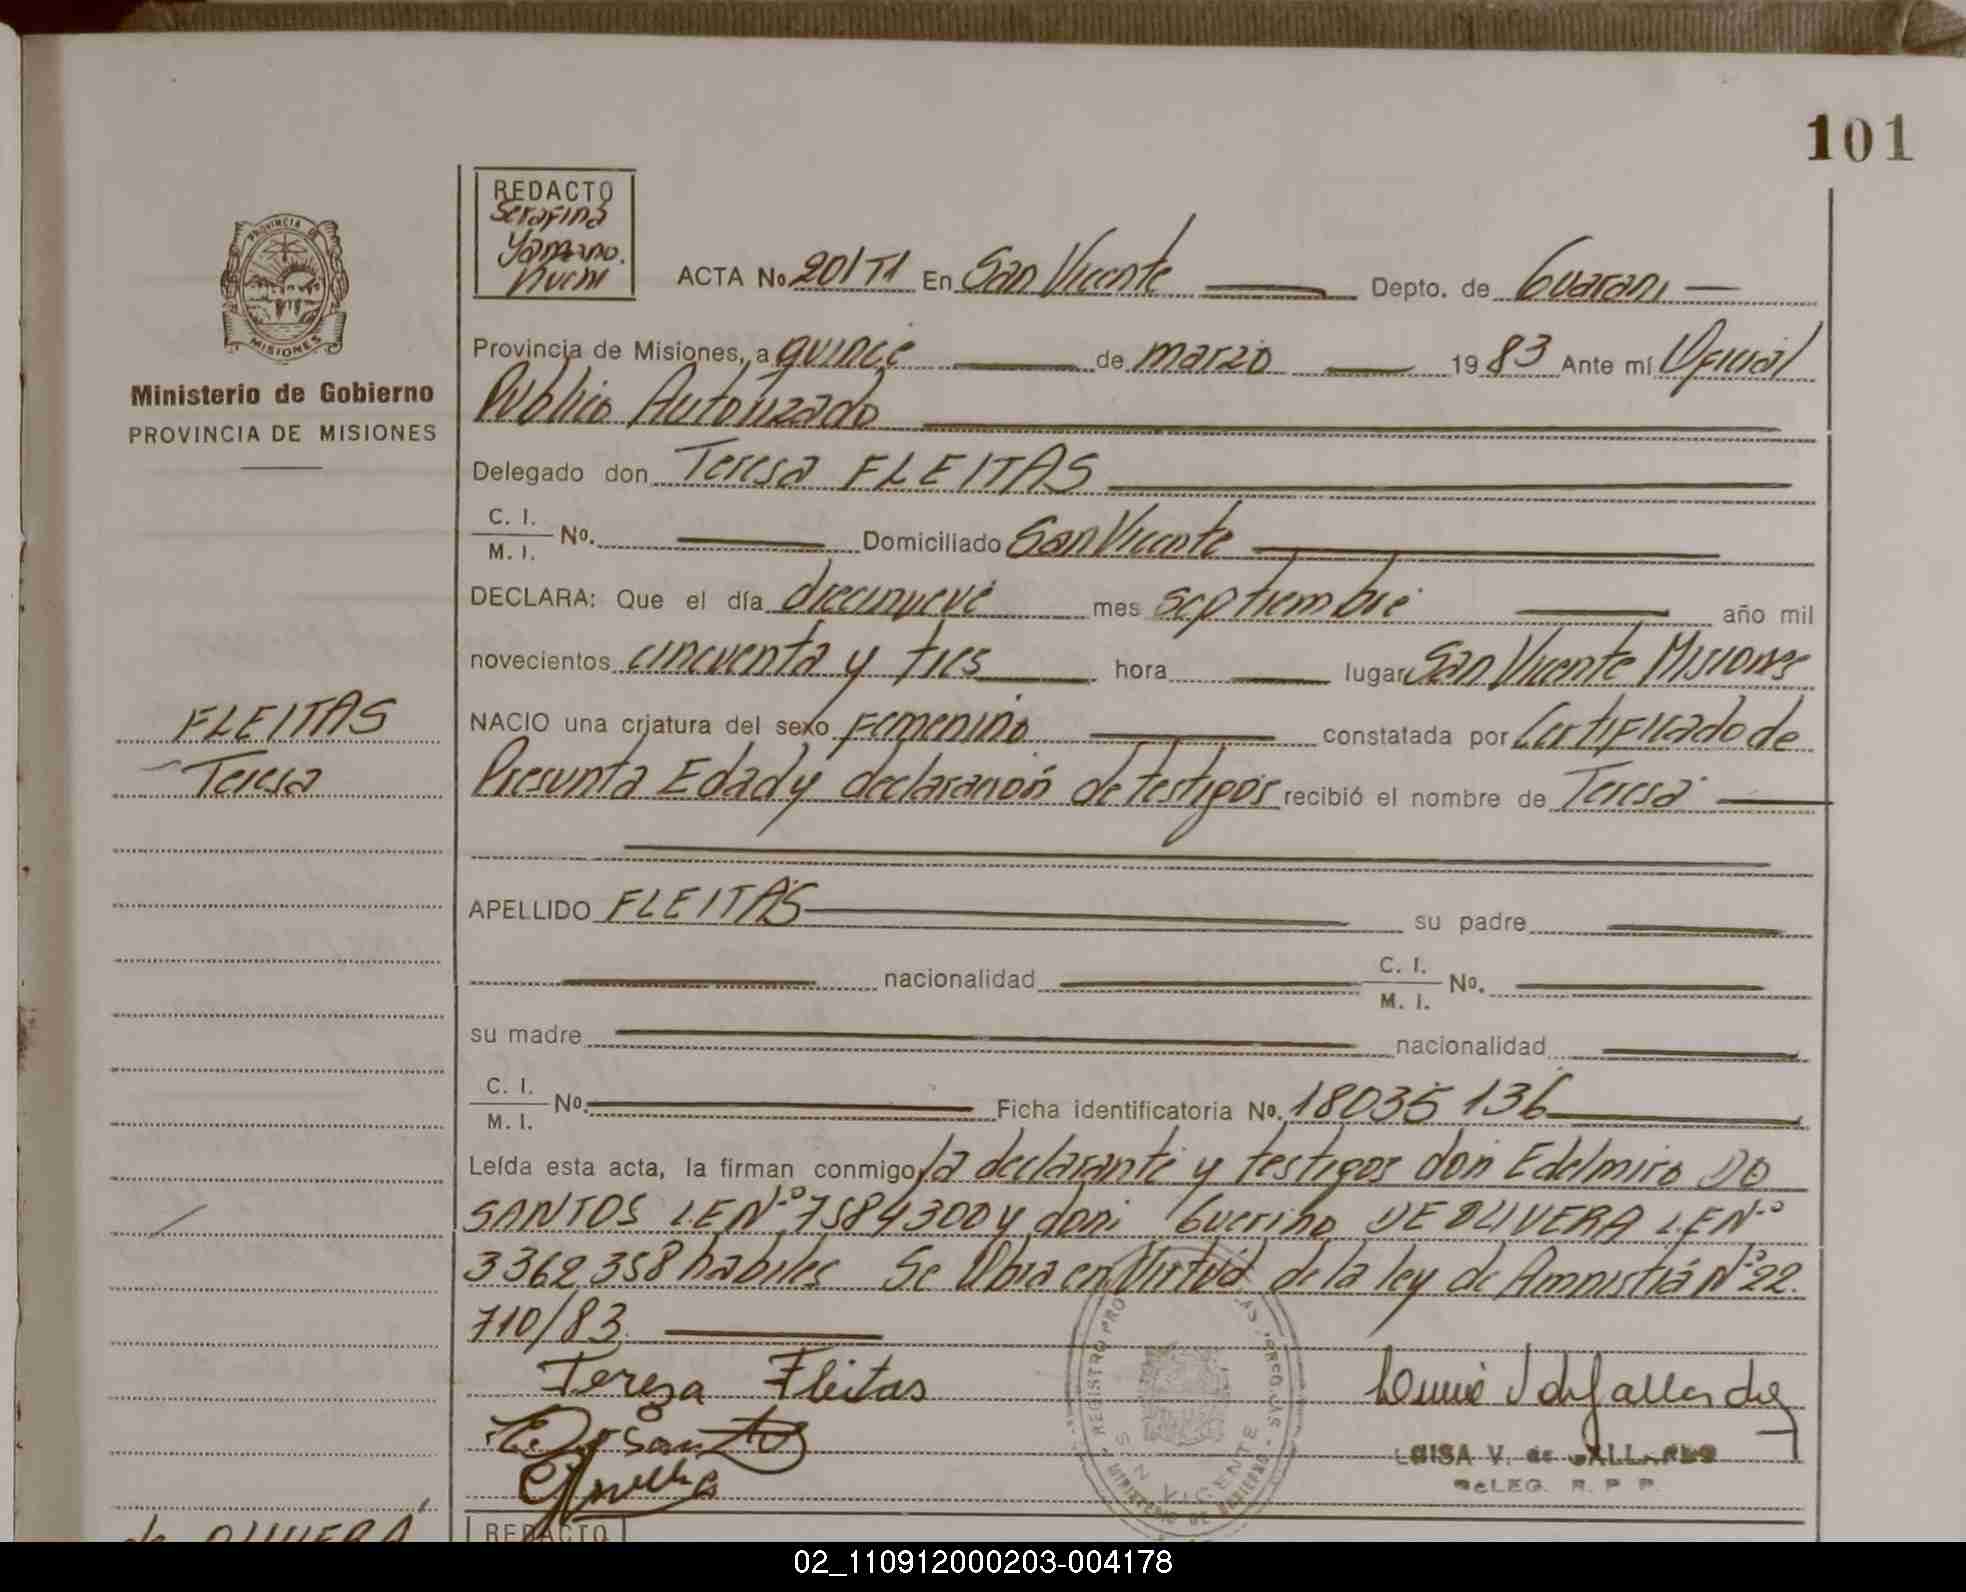 101
REDACTO
Serafina
ACTA No 201 T1 En San Vicente Depto. de Guarani
PROVINCIA DE
MISIONES
Provincia de Misiones, a quince de marzo 1983 Ante mí Oficial
Ministerio de Gobierno
Publico Autorizado
PROVINCIA DE MISIONES
Delegado don Teresa FLEITAS
C. I.
M. I. No. Domiciliado San Vicente
DECLARA: Que el día diecinueve mes septiembre año mil
novecientos cincuenta y tres hora lugar San Vicente Misiones
FLEITAS
NACIO una criatura del sexo femenino constatada por Certificado de
Teresa
Presunta Edad y declaración de testigos recibió el nombre de Teresa
APELLIDO FLEITAS su padre
nacionalidad C. I.
M. I. No.
su madre nacionalidad
C. I.
M. I. No. Ficha identificatoria No. 18035136
Leída esta acta, la firman conmigo, la declarante y testigos don Edelmiro DO
SANTOS L.E.Nº 7584300 y don Guerino DE OLIVERA L.E.Nº
3362358 habiles Se Obra en Virtud de la ley de Amnistiá Nº 22.
710/83.
Teresa Fleitas
LUISA V. de GALLARDO
DELEG. R. P. P.
REGISTRO PRO
MINISTERIO DE GOBIERNO
SAN VICENTE
de OLIVERA
REDACTO
02_110912000203-004178